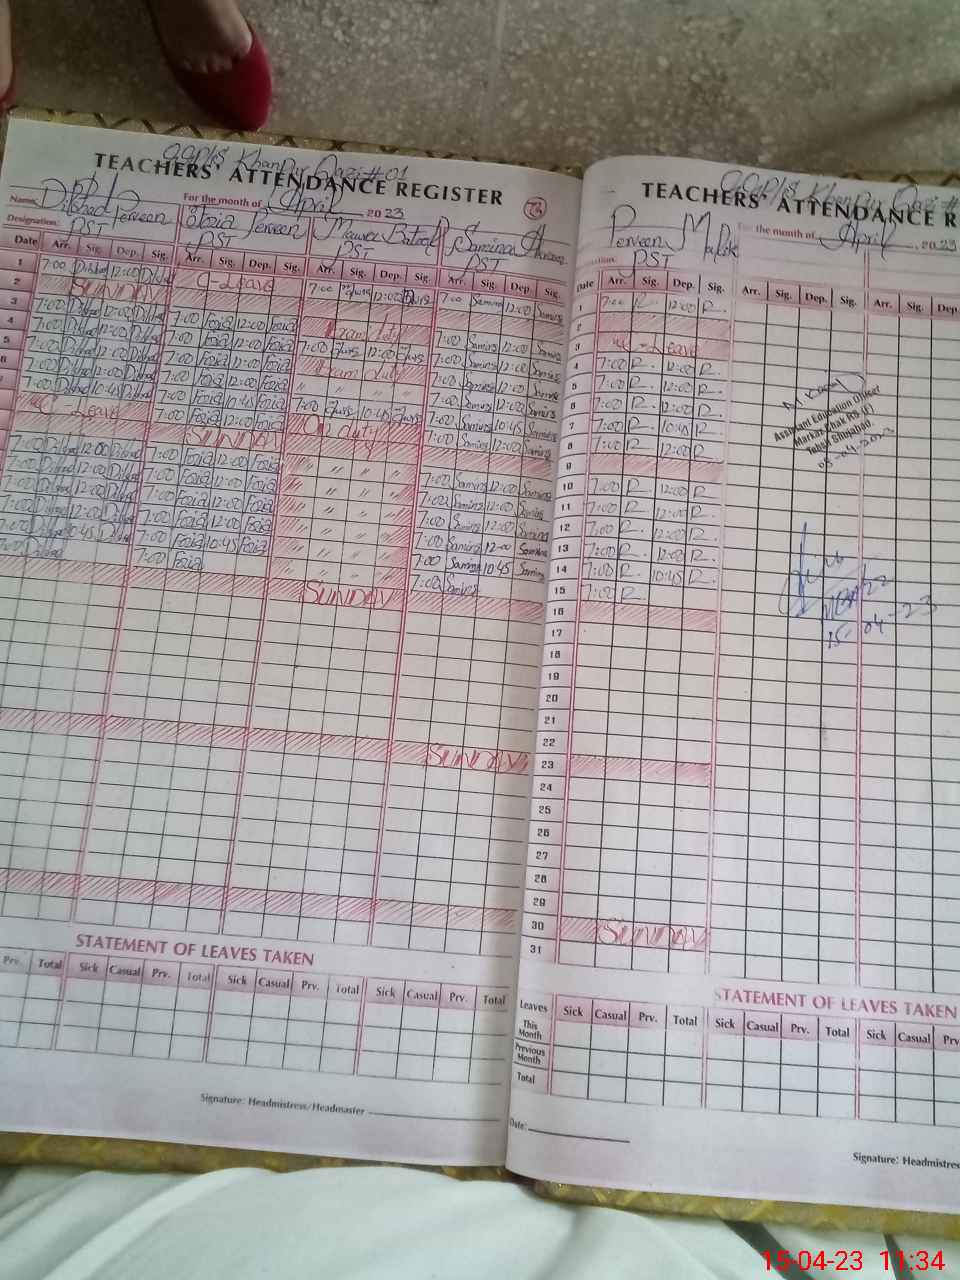 GGP/S Khan Pur Qazi #01
TEACHERS' ATTENDANCE REGISTER
Name: Dilshad Perveen
For the month of April 2023
Fozia Perveen
Designation: PST
PST
PST
PST
Date Arr. Sig. Dep. Sig. Arr. Sig. Dep. Sig. Arr. Sig. Dep. Sig. Arr. Sig. Dep. Sig.
1 7:00 Dilshad 12:00 Dilshad C-Leave 7:00 12:00 7:00 Samina 12:00 Samina
2 SUNDAY
3 7:00 Dilshad 12:00 Dilshad 7:00 Fozia 12:00 Fozia Exam duty 7:00 Samina 12:00 Samina
4 7:00 Dilshad 12:00 Dilshad 7:00 Fozia 12:00 Fozia 7:00 12:00 7:00 Samina 12:00 Samina
5 7:00 Dilshad 12:00 Dilshad 7:00 Fozia 12:00 Fozia Exam duty 7:00 Samina 12:00 Samina
7:00 Dilshad 12:00 Dilshad 7:00 Fozia 12:00 Fozia " " " 7:00 Samina 12:00 Samina
7:00 Dilshad 10:45 Dilshad 7:00 Fozia 10:45 Fozia 7:00 10:45 7:00 Samina 10:45 Samina
C-Leave 7:00 Fozia 12:00 Fozia On duty 7:00 Samina 12:00 Samina
SUNDAY
7:00 Dilshad 12:00 Dilshad 7:00 Fozia 12:00 Fozia " " " 7:00 Samina 12:00 Samina
7:00 Dilshad 12:00 Dilshad 7:00 Fozia 12:00 Fozia " " " 7:00 Samina 12:00 Samina
7:00 Dilshad 12:00 Dilshad 7:00 Fozia 12:00 Fozia " " " 7:00 Samina 12:00 Samina
7:00 Dilshad 12:00 Dilshad 7:00 Fozia 12:00 Fozia " " " 7:00 Samina 12:00 Samina
7:00 Dilshad 10:45 Dilshad 7:00 Fozia 10:45 Fozia " " " 7:00 Samina 10:45 Samina
7:00 Dilshad 7:00 Fozia " " " 7:00 Samina
SUNDAY
SUNDAY
STATEMENT OF LEAVES TAKEN
Prv. Total Sick Casual Prv. Total Sick Casual Prv. Total Sick Casual Prv. Total
Signature: Headmistress/Headmaster
GGP/S Khan Pur Qazi #
TEACHERS' ATTENDANCE R
Perveen Malik
For the month of April, 2023
PST
Date Arr. Sig. Dep. Sig. Arr. Sig. Dep. Sig. Arr. Sig. Dep.
1 7:00 R 12:00 R
2
3 C-Leave
4 7:00 R 12:00 R
5 7:00 R 12:00 R
6 7:00 R 12:00 R
7 7:00 R 10:45 R
8 7:00 R 12:00 R
9
10 7:00 R 12:00 R
11 7:00 R 12:00 R
12 7:00 R 12:00 R
13 7:00 R 12:00 R
14 7:00 R 10:45 R
15 7:00 R
16
17
18
19
20
21
22
23
24
25
26
27
28
29
30 SUNDAY
31
Assistant Education Officer
Markaz Chak RS (F)
Tehsil Shujabad.
05-04-2023
15-04-23
STATEMENT OF LEAVES TAKEN
Leaves Sick Casual Prv. Total Sick Casual Prv. Total Sick Casual Prv
This Month
Previous Month
Total
Date:
Signature: Headmistres
15-04-23 11:34